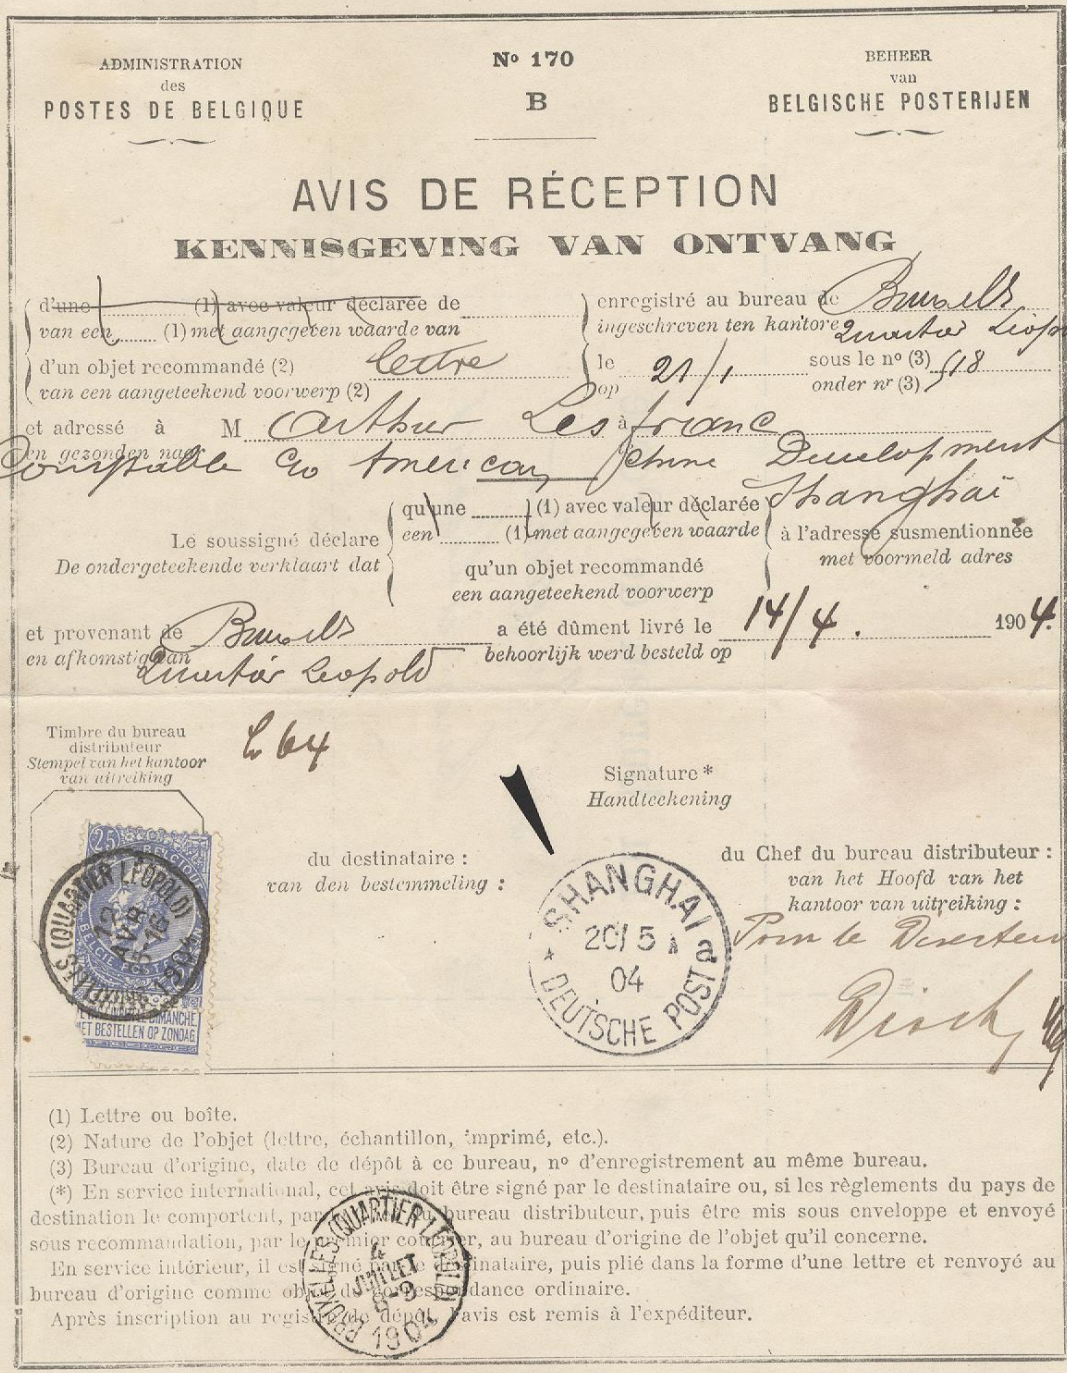 ADMINISTRATION
des
POSTES DE BELGIQUE
Nº 170
B
BEHEER
van
BELGISCHE POSTERIJEN
AVIS DE RÉCEPTION
KENNISGEVING VAN ONTVANG
d'une (1) avec valeur déclarée de
van een (1) met aangegeven waarde van
enregistré au bureau de Bruxelles
ingeschreven ten kantore Quartier Léop
d'un objet recommandé (2) lettre
van een aangeteekend voorwerp (2)
le 21/1 sous le nº (3) 518
op onder nr (3)
et adressé à M Arthur Lesfranc à
en gezonden naar
Constable c/o American China Development
Shanghaï
Le soussigné déclare
De ondergeteekende verklaart dat
qu'une (1) avec valeur déclarée
een (1) met aangegeven waarde
qu'un objet recommandé
een aangeteekend voorwerp
à l'adresse susmentionnée
met voormeld adres
et provenant de Bruxelles
en afkomstig van Quartier Léopold
a été dûment livré le 14/4. 1904.
behoorlijk werd besteld op
Timbre du bureau
distributeur
Stempel van het kantoor
van uitreiking
64
Signature*
Handteekening
du destinataire :
van den bestemmeling :
du Chef du bureau distributeur :
van het Hoofd van het
kantoor van uitreiking :
Pour le Directeur
25
BELGIQUE
BELGIË POSTERIJEN
NE PAS LIVRER LE DIMANCHE
NIET BESTELLEN OP ZONDAG
BRUXELLES (QUARTIER LÉOPOLD)
12
AVR
1904
SHANGHAI
20/5
04
a
DEUTSCHE POST
(1) Lettre ou boîte.
(2) Nature de l'objet (lettre, échantillon, imprimé, etc.).
(3) Bureau d'origine, date de dépôt à ce bureau, nº d'enregistrement au même bureau.
(*) En service international, cet avis doit être signé par le destinataire ou, si les règlements du pays de
destination le comportent, par le chef du bureau distributeur, puis être mis sous enveloppe et envoyé
sous recommandation, par le premier courrier, au bureau d'origine de l'objet qu'il concerne.
En service intérieur, il est signé par le destinataire, puis plié dans la forme d'une lettre et renvoyé au
bureau d'origine comme objet de correspondance ordinaire.
Après inscription au registre de dépôt, l'avis est remis à l'expéditeur.
BRUXELLES (QUARTIER LÉOPOLD)
4
JUILLET
8-9
1904